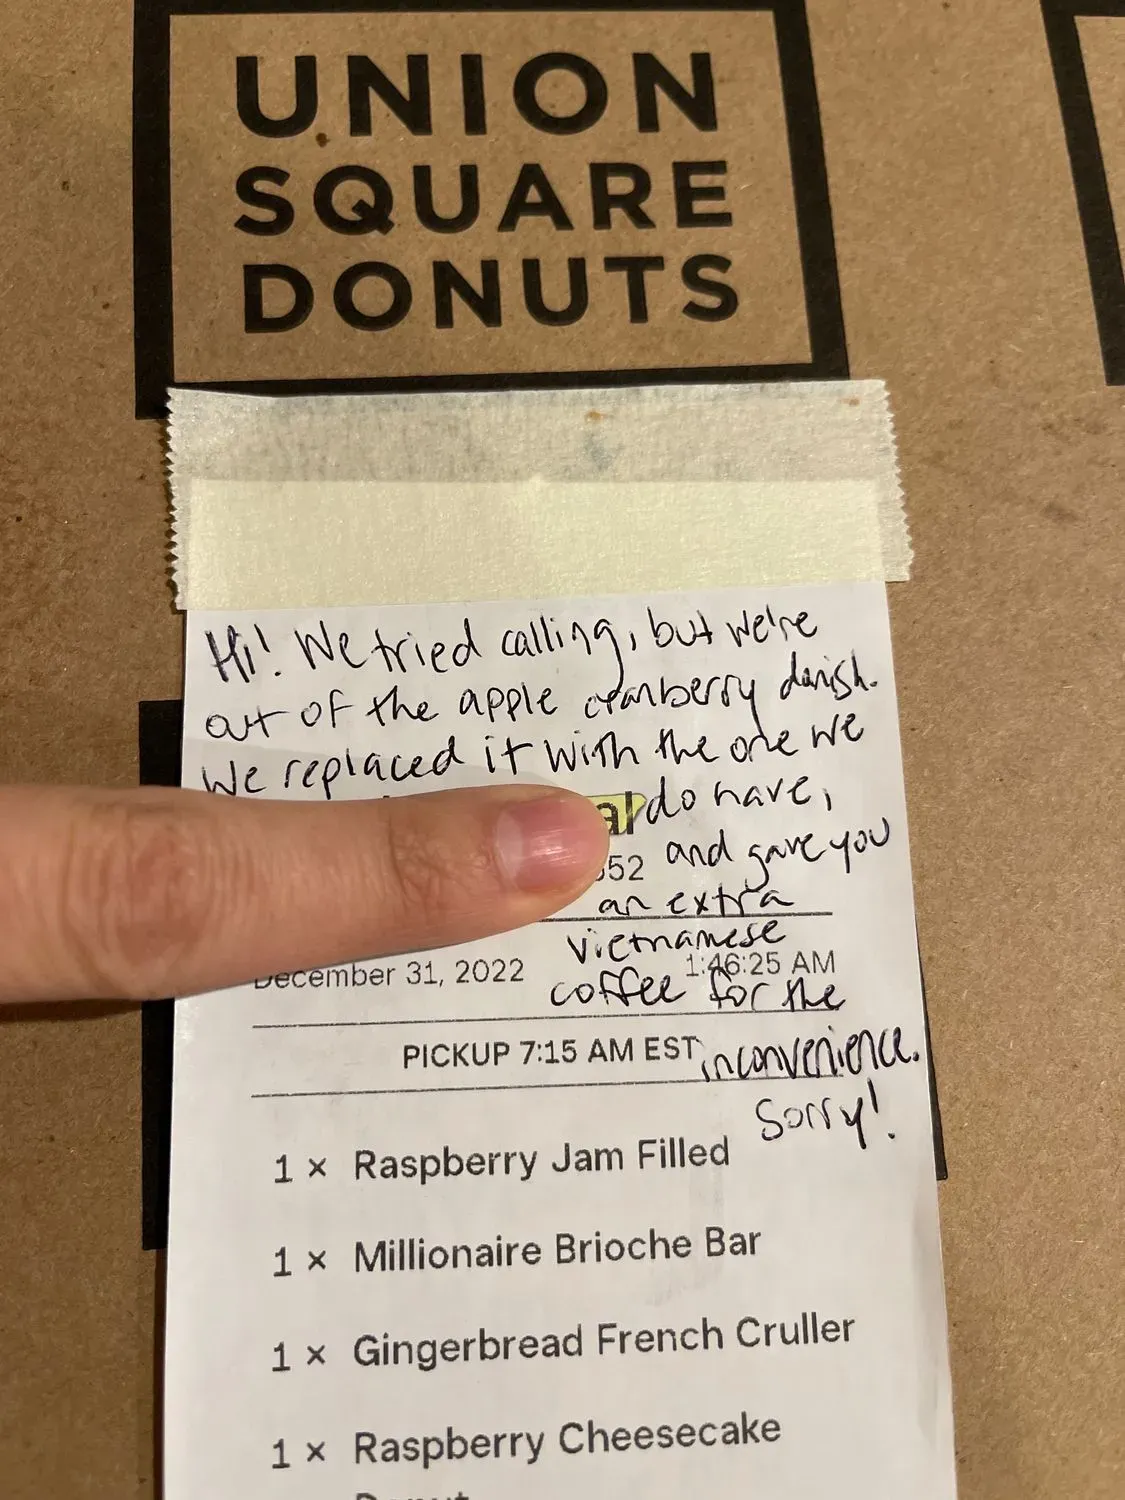 UNION
SQUARE
DONUTS
Hi! We tried calling, but we're
out of the apple cranberry danish.
We replaced it with the one we
al do have,
652 and gave you
an extra
vietnamese
December 31, 2022 1:46:25 AM
coffee for the
PICKUP 7:15 AM EST inconvenience.
Sorry!
1 × Raspberry Jam Filled
1 × Millionaire Brioche Bar
1 × Gingerbread French Cruller
1 × Raspberry Cheesecake
Donut